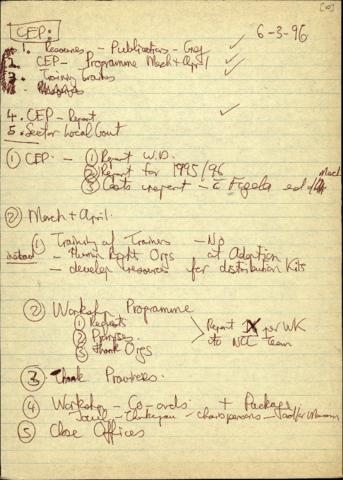 [10]
CEP:
6-3-96
1. Resources - Publications -
2. CEP - Programme March + April
3. Training Trainers
4. CEP - Report
5. Sector Local Govt
① CEP - ① Report W.D.
② Report for 1995/96
③ Costs report - end of March
② March + April
① Training of Trainers - No
instead - Human Right Orgs at Adoption
- develop resources for distribution Kits
② Workshop Programme
① Requests
② Promises
③ Thank Orgs
Report 1X per WK
to NCC Team
③ Thank Provinces.
④ Workshop - Co-ords + Packages
- Chairpersons -
⑤ Close Offices